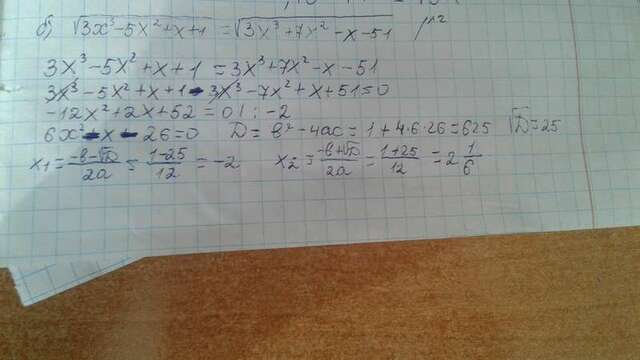 б) √3x³-5x²+x+1 = √3x³+7x²-x-51 /^2
3x³-5x²+x+1 = 3x³+7x²-x-51
3x³-5x²+x+1-3x³-7x²+x+51=0
-12x²+2x+52=0 |:-2
6x²-x-26=0 D=b²-4ac=1+4·6·26=625 √D=25
x₁=-b-√D/2a=1-25/12=-2 x₂=-b+√D/2a=1+25/12=2 1/6